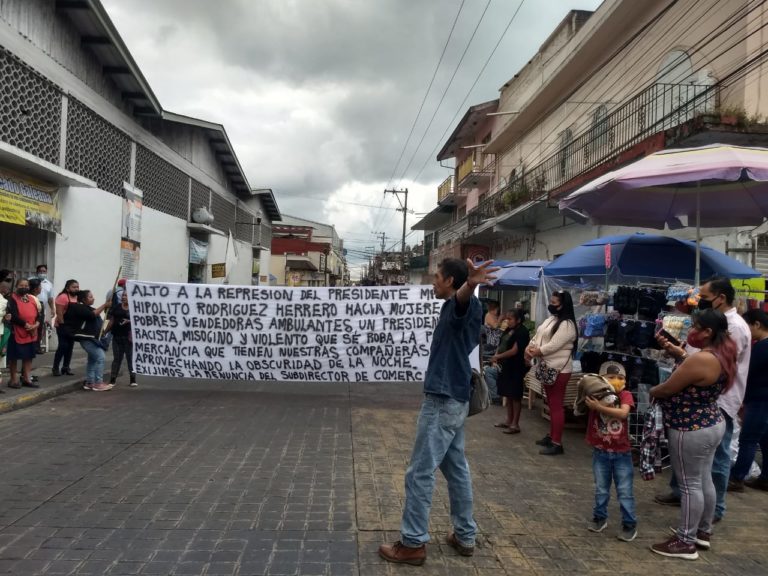 ALTO A LA REPRESION DEL PRESIDENTE
HIPOLITO RODRIGUEZ HERRERO HACIA MUJERE
POBRES VENDEDORAS AMBULANTES UN PRESIDEN
ACISTA, MISOGINO Y VIOLENTO QUE SE ROBA LA
MERCANCIA QUE TIENEN NUESTRAS COMPAÑERAS
APROVECHANDO LA OBSCURIDAD DE LA NOCHE.
EXIJIMOS LA RENUNCIA DEL SUBDIRECTOR DE COMERC